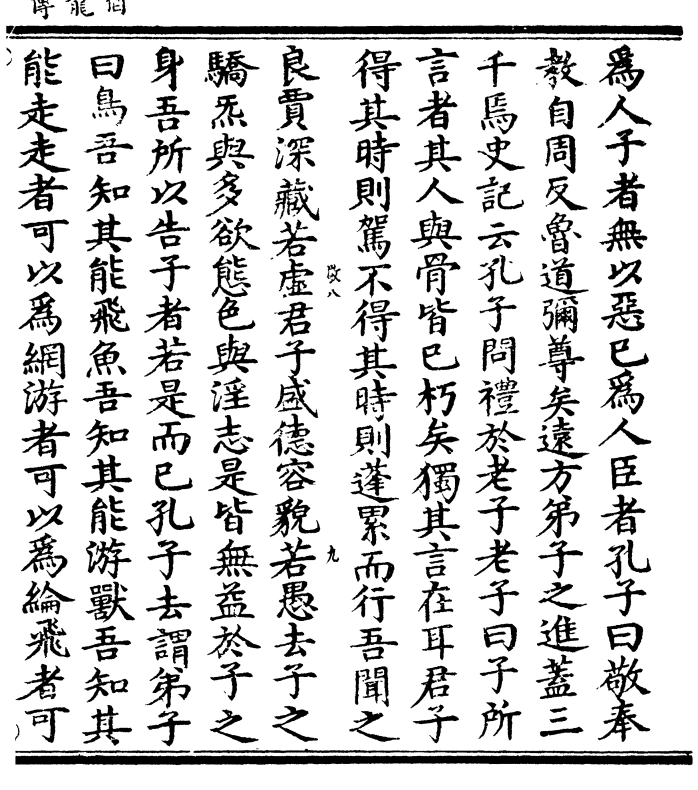 為人子者無以惡己為人臣者孔子曰敬奉
教自周反魯道彌尊矣遠方弟子之進蓋三
千焉史記云孔子問禮於老子老子曰子所
言者其人與骨皆已朽矣獨其言在耳君子
得其時則駕不得其時則蓬累而行吾聞之
良賈深藏若虛君子盛德容貌若愚去子之
驕炁與多欲態色與淫志是皆無益於子之
身吾所以告子者若是而已孔子去謂弟子
曰鳥吾知其能飛魚吾知其能游獸吾知其
能走走者可以為網游者可以為綸飛者可